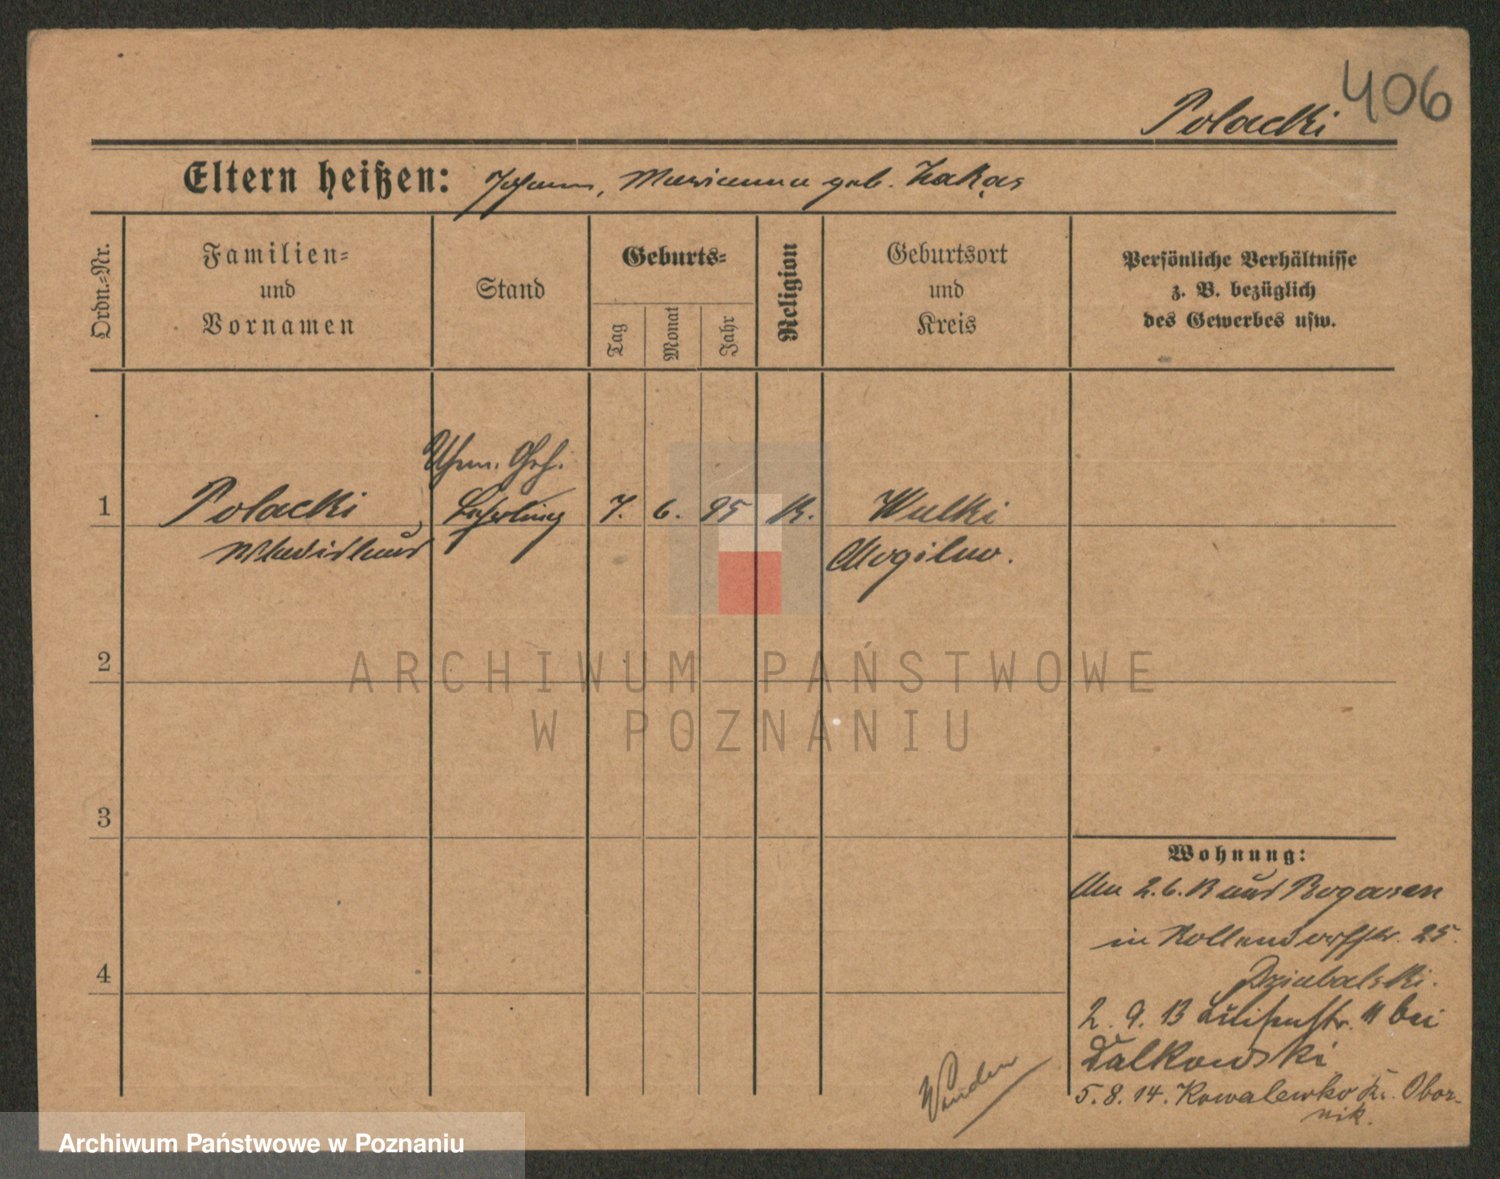 406
Polacki
Eltern heißen: Johann, Marianna geb. Zakas
Ordn.-Nr.
Familien-
und
Vornamen
Stand
Geburts-
Tag
Monat
Jahr
Religion
Geburtsort
und
Kreis
Persönliche Verhältnisse
z. B. bezüglich
des Gewerbes usw.
Uhrm. Geh.
1 Polacki, Lehrling 7. 6. 95 K. Wulki
Wladislaus Mogilno.
2
ARCHIWUM PAŃSTWOWE
W POZNANIU
3
Wohnung:
Am 2. 6. 13 aus Rogasen
in Nollendorfstr. 25.
4
Dziabalski.
2. 9. 13 Luisenstr. 11 bei
Dalkowski
5. 8. 14. Kowalewko Kr. Obor-
nik.
Archiwum Państwowe w Poznaniu